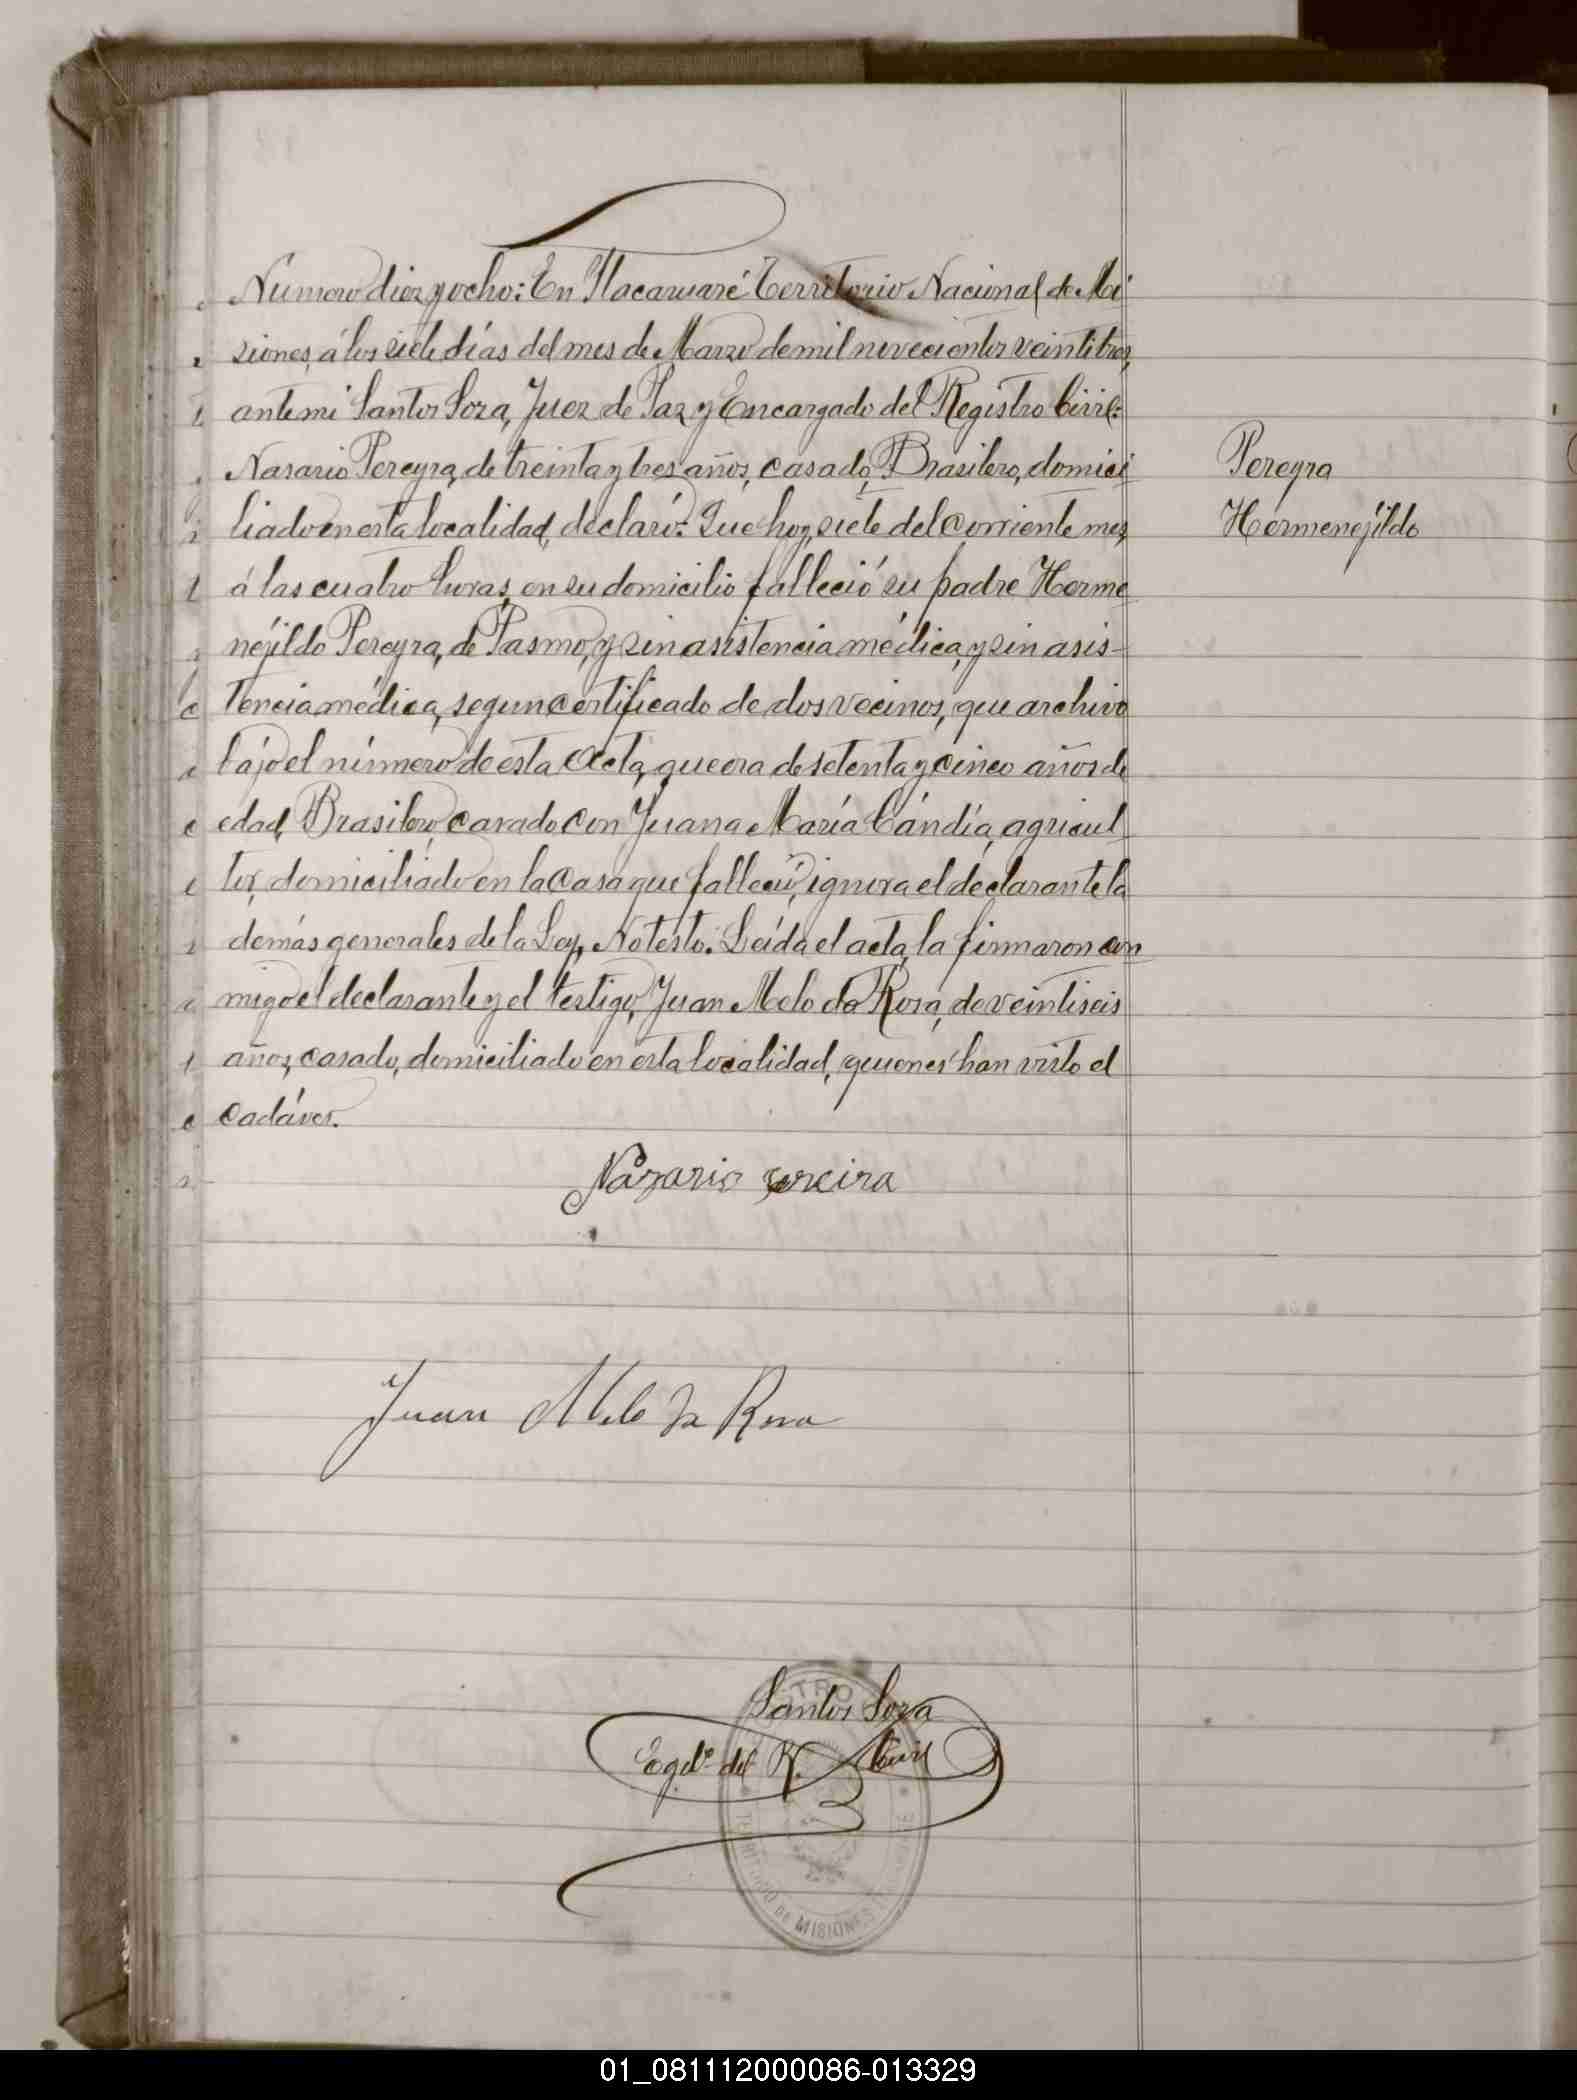 Número diez y ocho: En Itacaruaré Territorio Nacional de Mi
siones, á los siete días del mes de Marzo de mil novecientos veintitres,
ante mi Santos Soza, Juez de Paz y Encargado del Registro Civil:
Nasario Pereyra, de treinta y tres años, casado, Brasilero, domici
liado en esta localidad, declaró: Que hoy, siete del corriente mes,
á las cuatro horas, en su domicilio falleció su padre Herme
nejildo Pereyra, de Pasmo, y sin asistencia médica, y sin asis-
tencia médica, segun certificado de dos vecinos, que archivo
bajo el número de esta Acta, que era de setenta y cinco años de
edad, Brasilero, casado con Juana María Cándía, agricul
tor, domiciliado en la casa que falleció, ignora el declarante la
demás generales de la Ley, No testó. Leída el acta, la firmaron con
migo el declarante y el testigo, Juan Melo da Rosa, de veintiseis
años, casado, domiciliado en esta localidad, quienes han visto el
cadáver.
Pereyra
Hermenejildo
Nazario Pereira
Juan Melo da Rosa
Santos Soza
Egdo. del R. Civil
TERRITORIO DE MISIONES
01_081112000086-013329